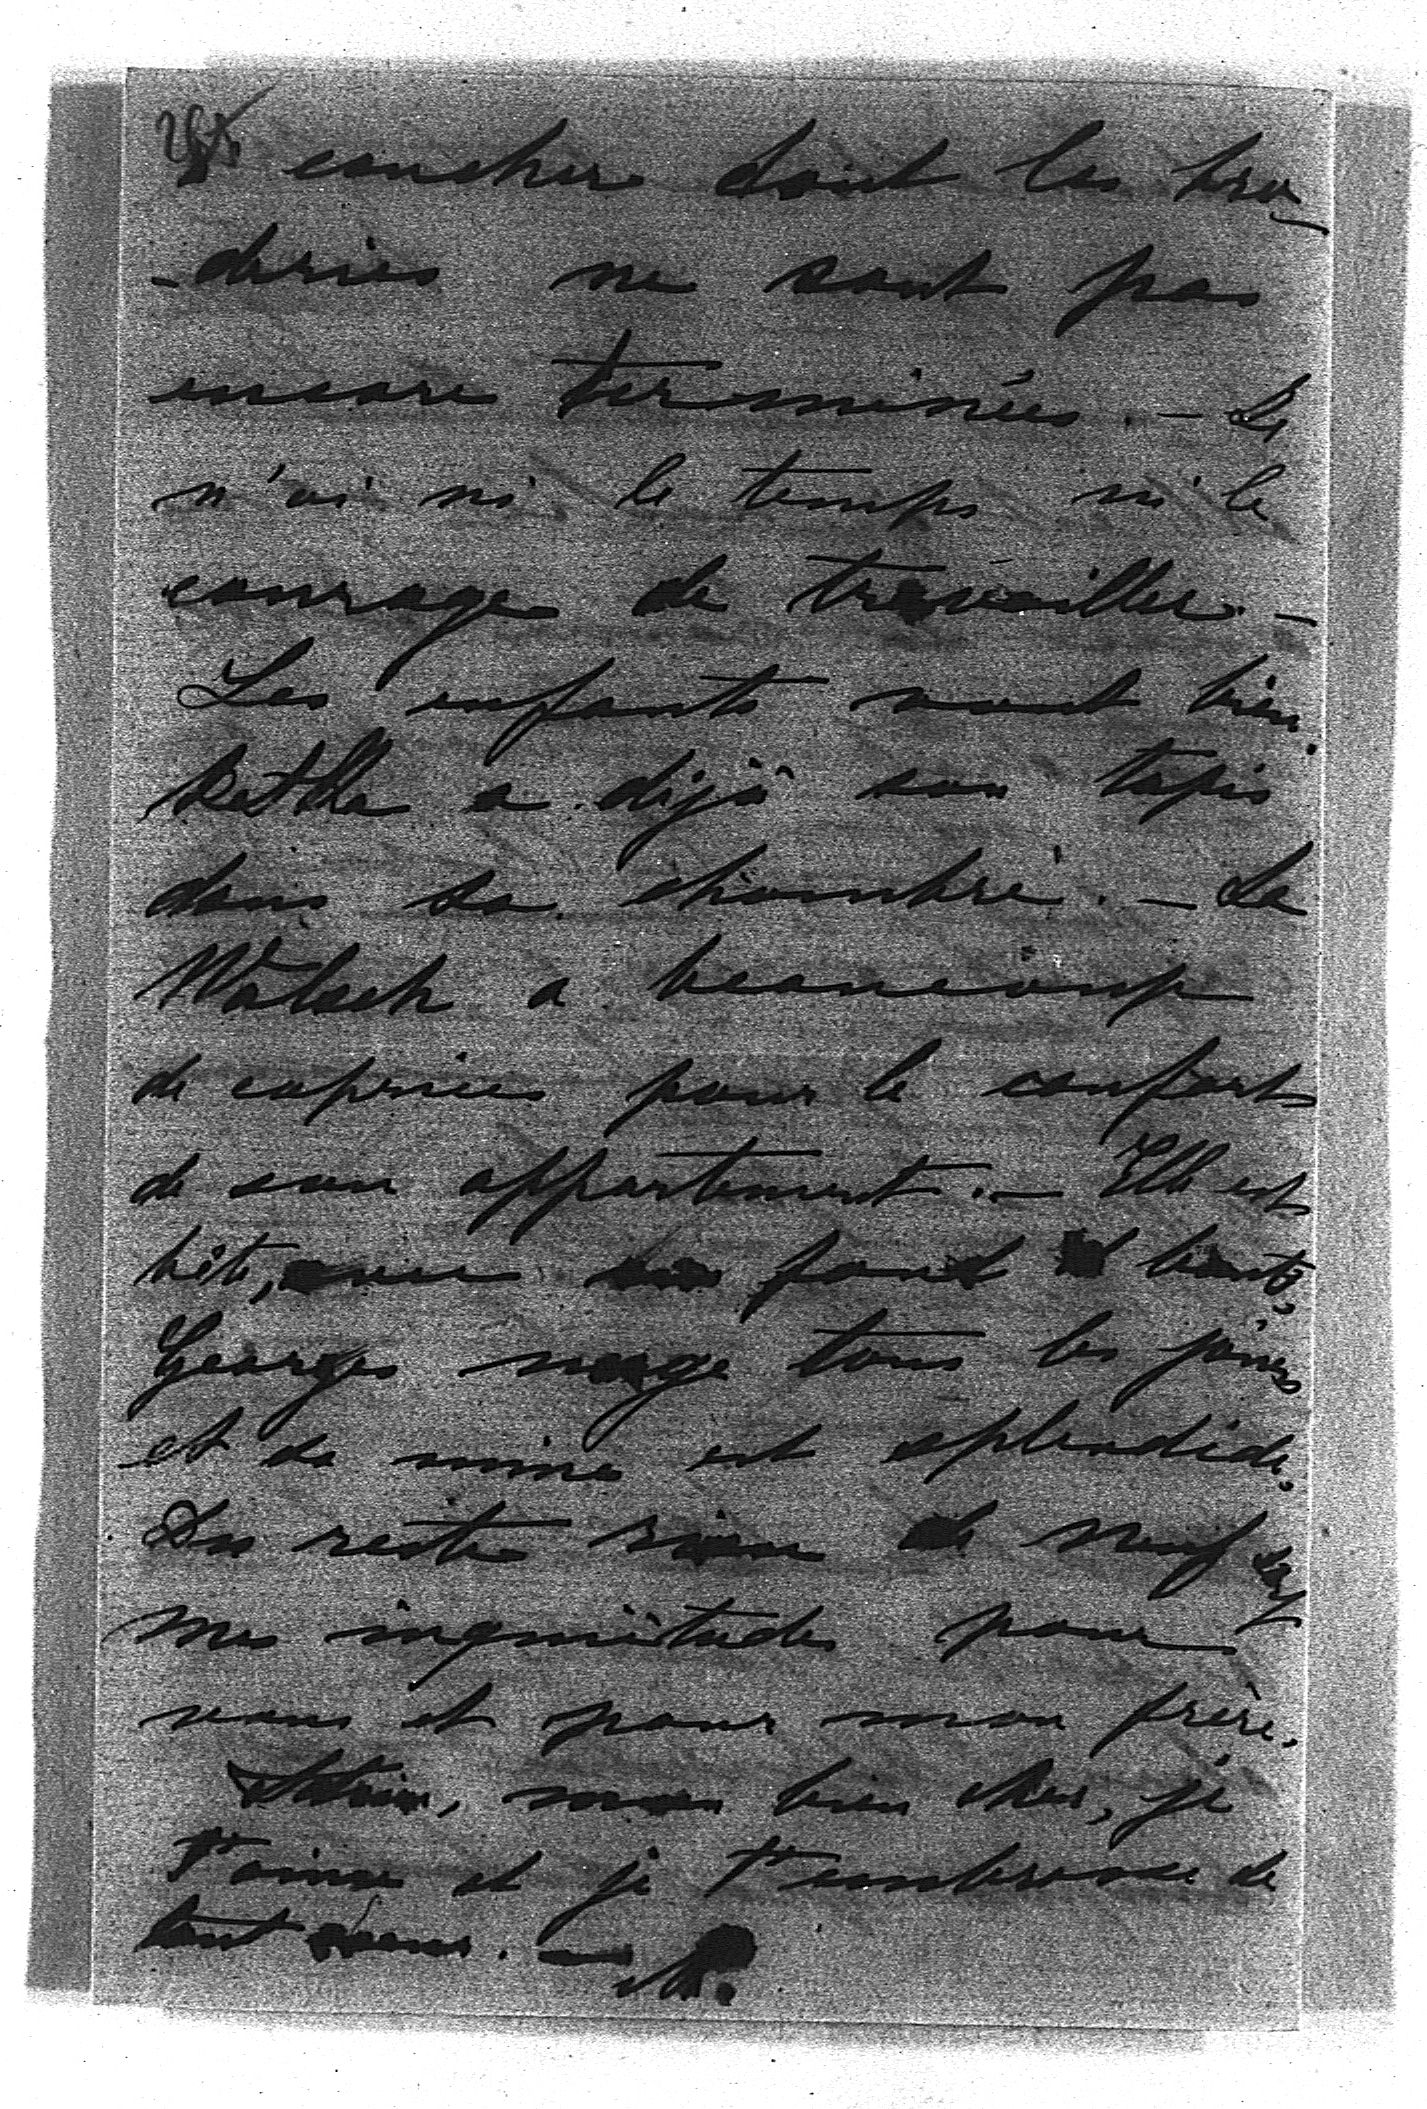 à coucher dont les bro-
-deries ne sont pas
encore terminées. — Je
n'ai ni le temps ni le
courage de travailler. —
Les enfants vont bien.
Ketlla a déjà son tapis
dans sa chambre. — La
Walsch a beaucoup
de caprices pour le confort
de son appartement. — Elle est
bête, avec fond bonté.
Georges nage tous les jours
et sa mine est splendide.
Du reste rien de neuf sauf
mes inquiétudes pour
vous et pour mon frère.
mon bien cher, je
t'aime et je t'embrasse de
tout coeur. — M.